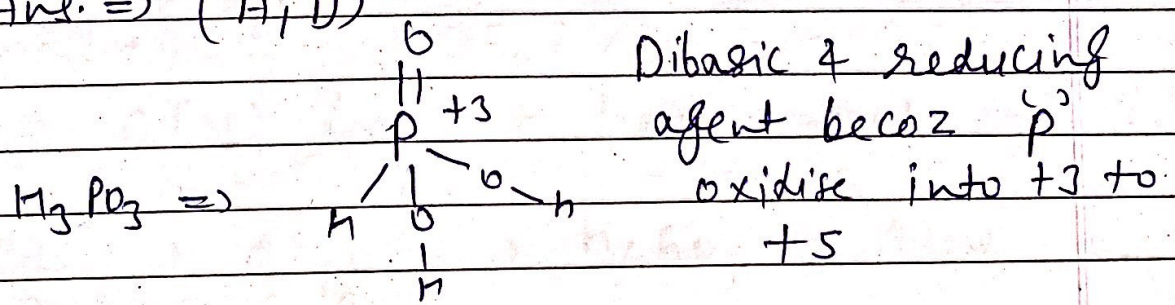 Ans. => (A, D)
O
||
P +3
H₃PO₃ =>
H O O H
H
Dibasic & reducing
agent becoz 'p'
oxidise into +3 to
+5